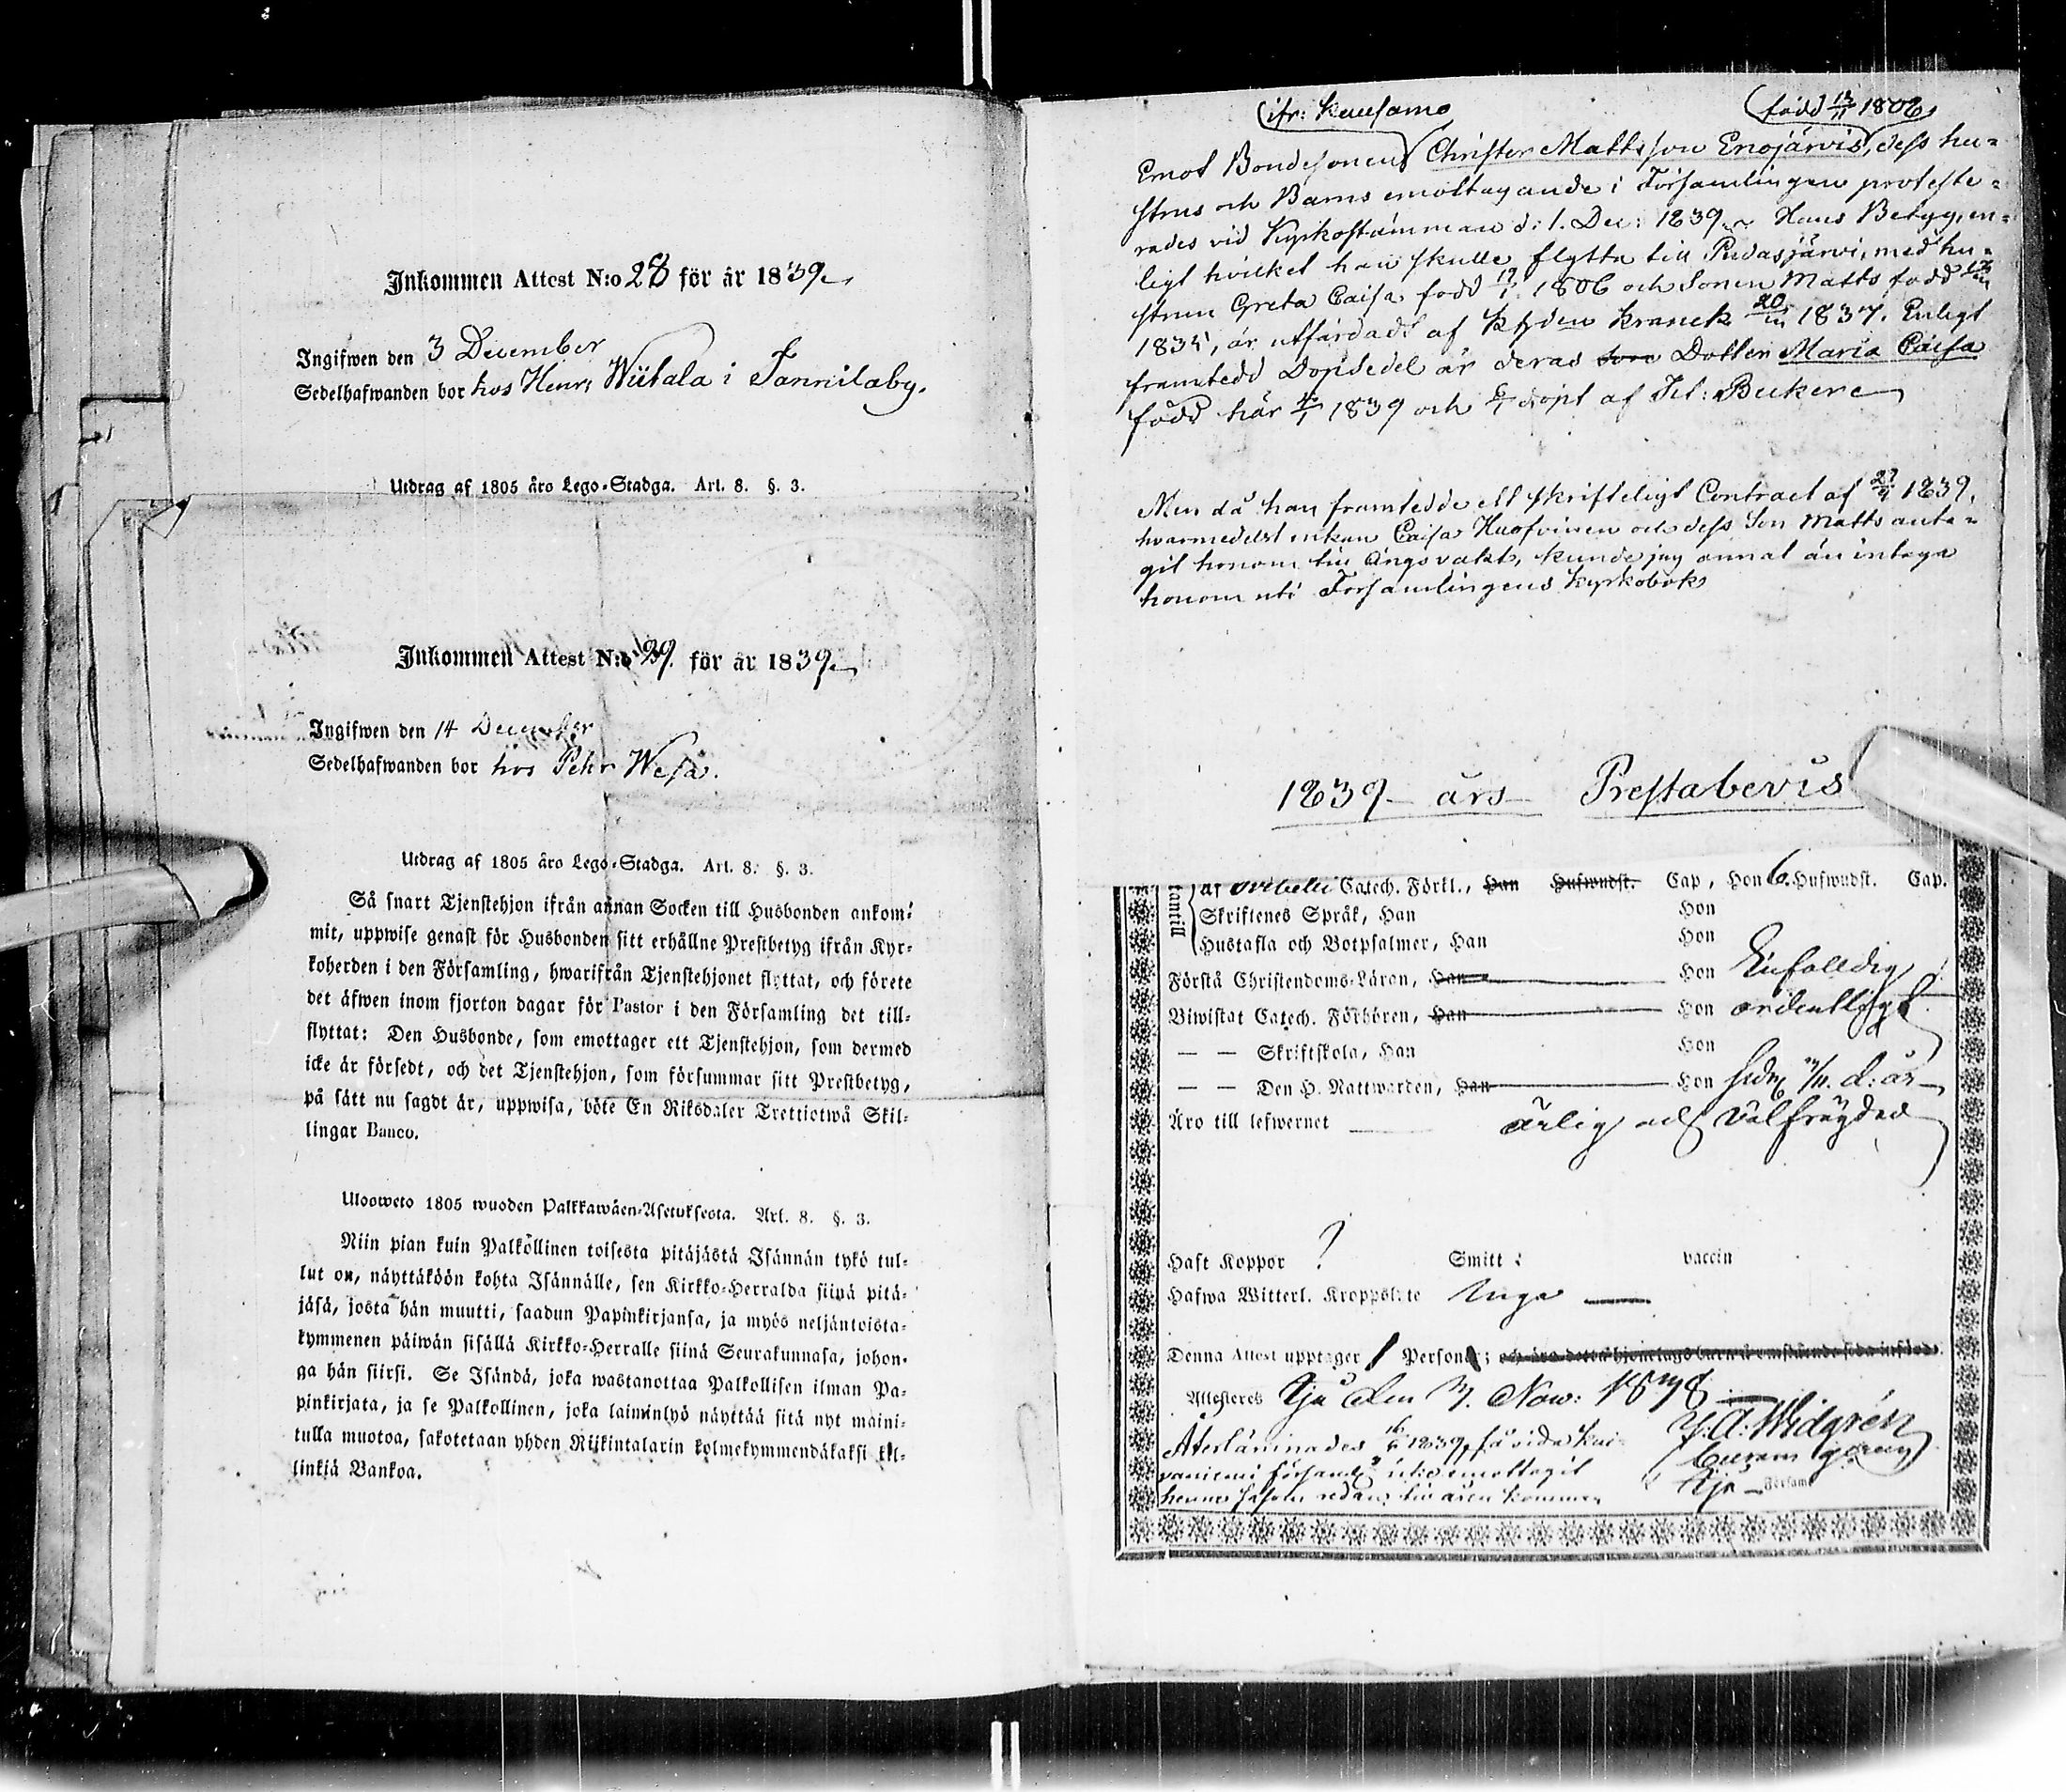 Inkommen Attest N:o 28 för år 1839.
Ingifwen den 3 December
Sedelhafwanden bor hos Henr: Wiitala i Tannilaby.
Utdrag af 1805 åro Lego-Stadga. Art. 8. §. 3.
Inkommen Attest N:o 29. för år 1839.
Ingifwen den 14 December
Sedelhafwanden bor hos Pehr Wesa.
Utdrag af 1805 åro Lego-Stadga. Art. 8. §. 3.
Så snart Tjenstehjon ifrån annan Socken till Husbonden ankom-
mit, uppwise genast för Husbonden sitt erhållne Prestbetyg ifrån Kyr-
koherden i den Församling, hwarifrån Tjenstehjonet flyttat, och förete
det äfwen inom fjorton dagar för Pastor i den Församling det till-
flyttat: Den Husbonde, som emottager ett Tjenstehjon, som dermed
icke är försedt, och det Tjenstehjon, som försummar sitt Prestbetyg,
på sätt nu sagdt är, uppwisa, böte En Riksdaler Trettiotwå Skil-
lingar Banco.
Uloosweto 1805 wuoden Palkkawäen-Asetuksesta. Art. 8. §. 3.
Niin pian kuin Palkollinen toisesta pitäjästä Isännän tykö tul-
lut on, näyttäköön kohta Isännälle, sen Kirkko-Herralda siinä pitä-
jäsä, josta hän muutti, saadun Papinkirjansa, ja myös neljäntoista-
kymmenen päiwän sisällä Kirkko-Herralle siinä Seurakunnasa, johon-
ga hän siirsi. Se Isändä, joka wastanottaa Palkollisen ilman Pa-
pinkirjata, ja se Palkollinen, joka laiminlyö näyttää sitä nyt maini-
tulla muotoa, sakotetaan yhden Riikintalarin kolmekymmendäkaksi kil-
linkiä Bankoa.
ifr: Kuusamo född 13/11 1806
Emot Bondesonens Christer Mattsson Enojärvis, dess hu-
strus och Barns emottagande i Församlingen proteste-
rades vid Kyrkostämman d: 1. Dec: 1839. Hans Betyg, en-
ligt hvilket han skulle flytta till Pudasjärvi, med hu-
strun Greta Caisa född 1806 och Sonen Matts född
1835, är utfärdadt af Kranck 20 1837. Enligt
framtedd Dopsedel är deras Dotter Maria Caisa
född här 1839 och döpt af
Men då han framtedde ett skrifteligt Contract af 1839,
hvarmedelst enkan Caisa Huofvinen och dess Son Matts anta-
git honom till ängsvakt, kunde jag annat än intaga
honom uti Församlingens Kyrkobok
1839 års Prestabevis
af Catech. Förkl., Han Hufwudst. Cap, Hon 6. Hufwudst. Cap.
Skriftenes Språk, Han Hon
Hustafla och Botpsalmer, Han Hon
Förstå Christendoms-Läran, Han Hon Enfalldig
Biwistat Catech. Förhören, Han Hon ordentligt
— — Skriftskola, Han Hon
— — Den H. Nattwarden, Han Hon d: år
Äro till lefwernet ärlig och välfrägdad
Haft Koppor ? Smitt: vaccin
Hafwa Witterl. Kroppslyte Inga
Denna Attest upptager 1 Person;
Attesteras Ijo den Nov: 1838
Återlämnades 1839, J. A. Widgrén
församl: icke emottagit
Ijo Församl